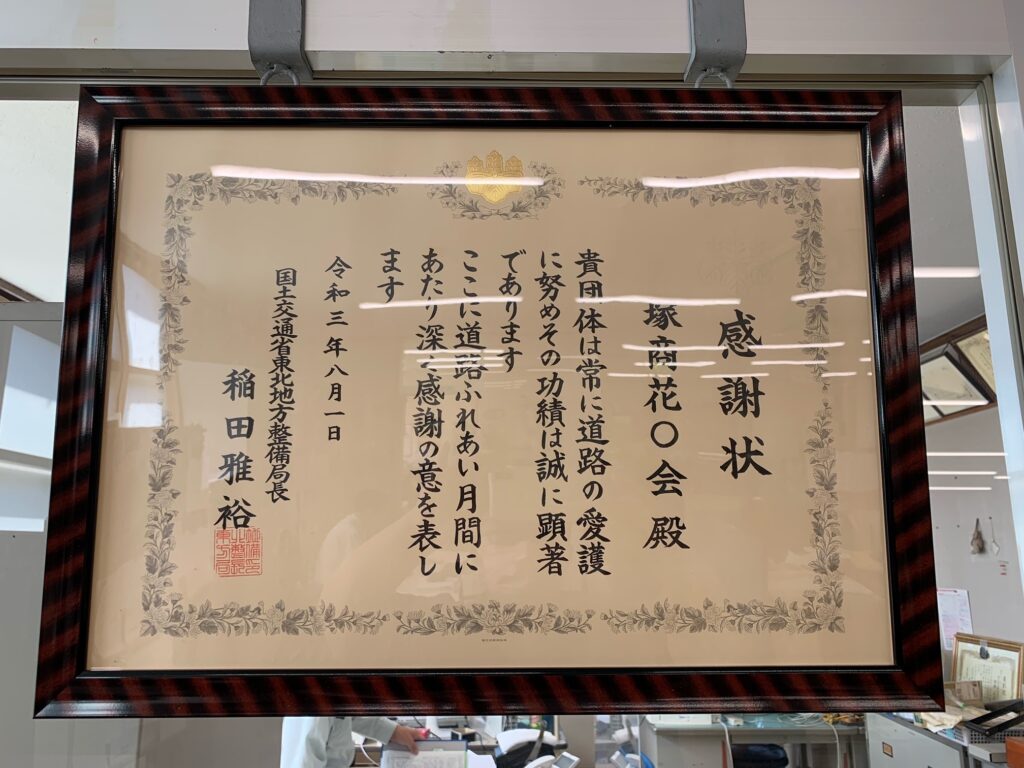 感謝状
塚商花〇会殿
貴団体は常に道路の愛護
に努めその功績は誠に顕著
であります
ここに道路ふれあい月間に
あたり深く感謝の意を表し
ます
令和三年八月一日
国土交通省東北地方整備局長
稲田雅裕